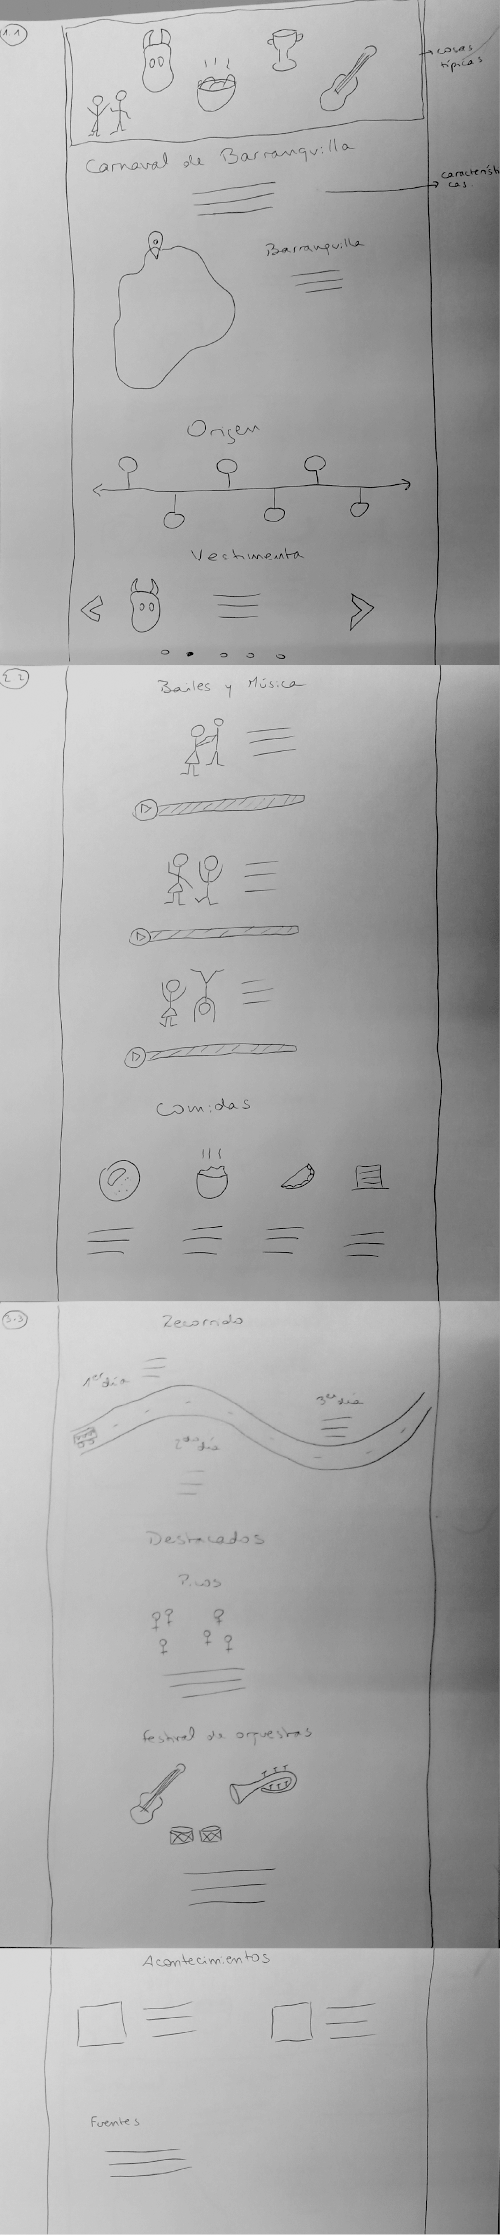 1.1
cosas
típicas
Carnaval de Barranquilla
característi
cas.
Barranquilla
Origen
Vestimenta
2.2
Bailes y Música
Comidas
3.3
Recorrido
1er día
3er día
2do día
Destacados
Picos
festival de orquestas
Acontecimientos
Fuentes